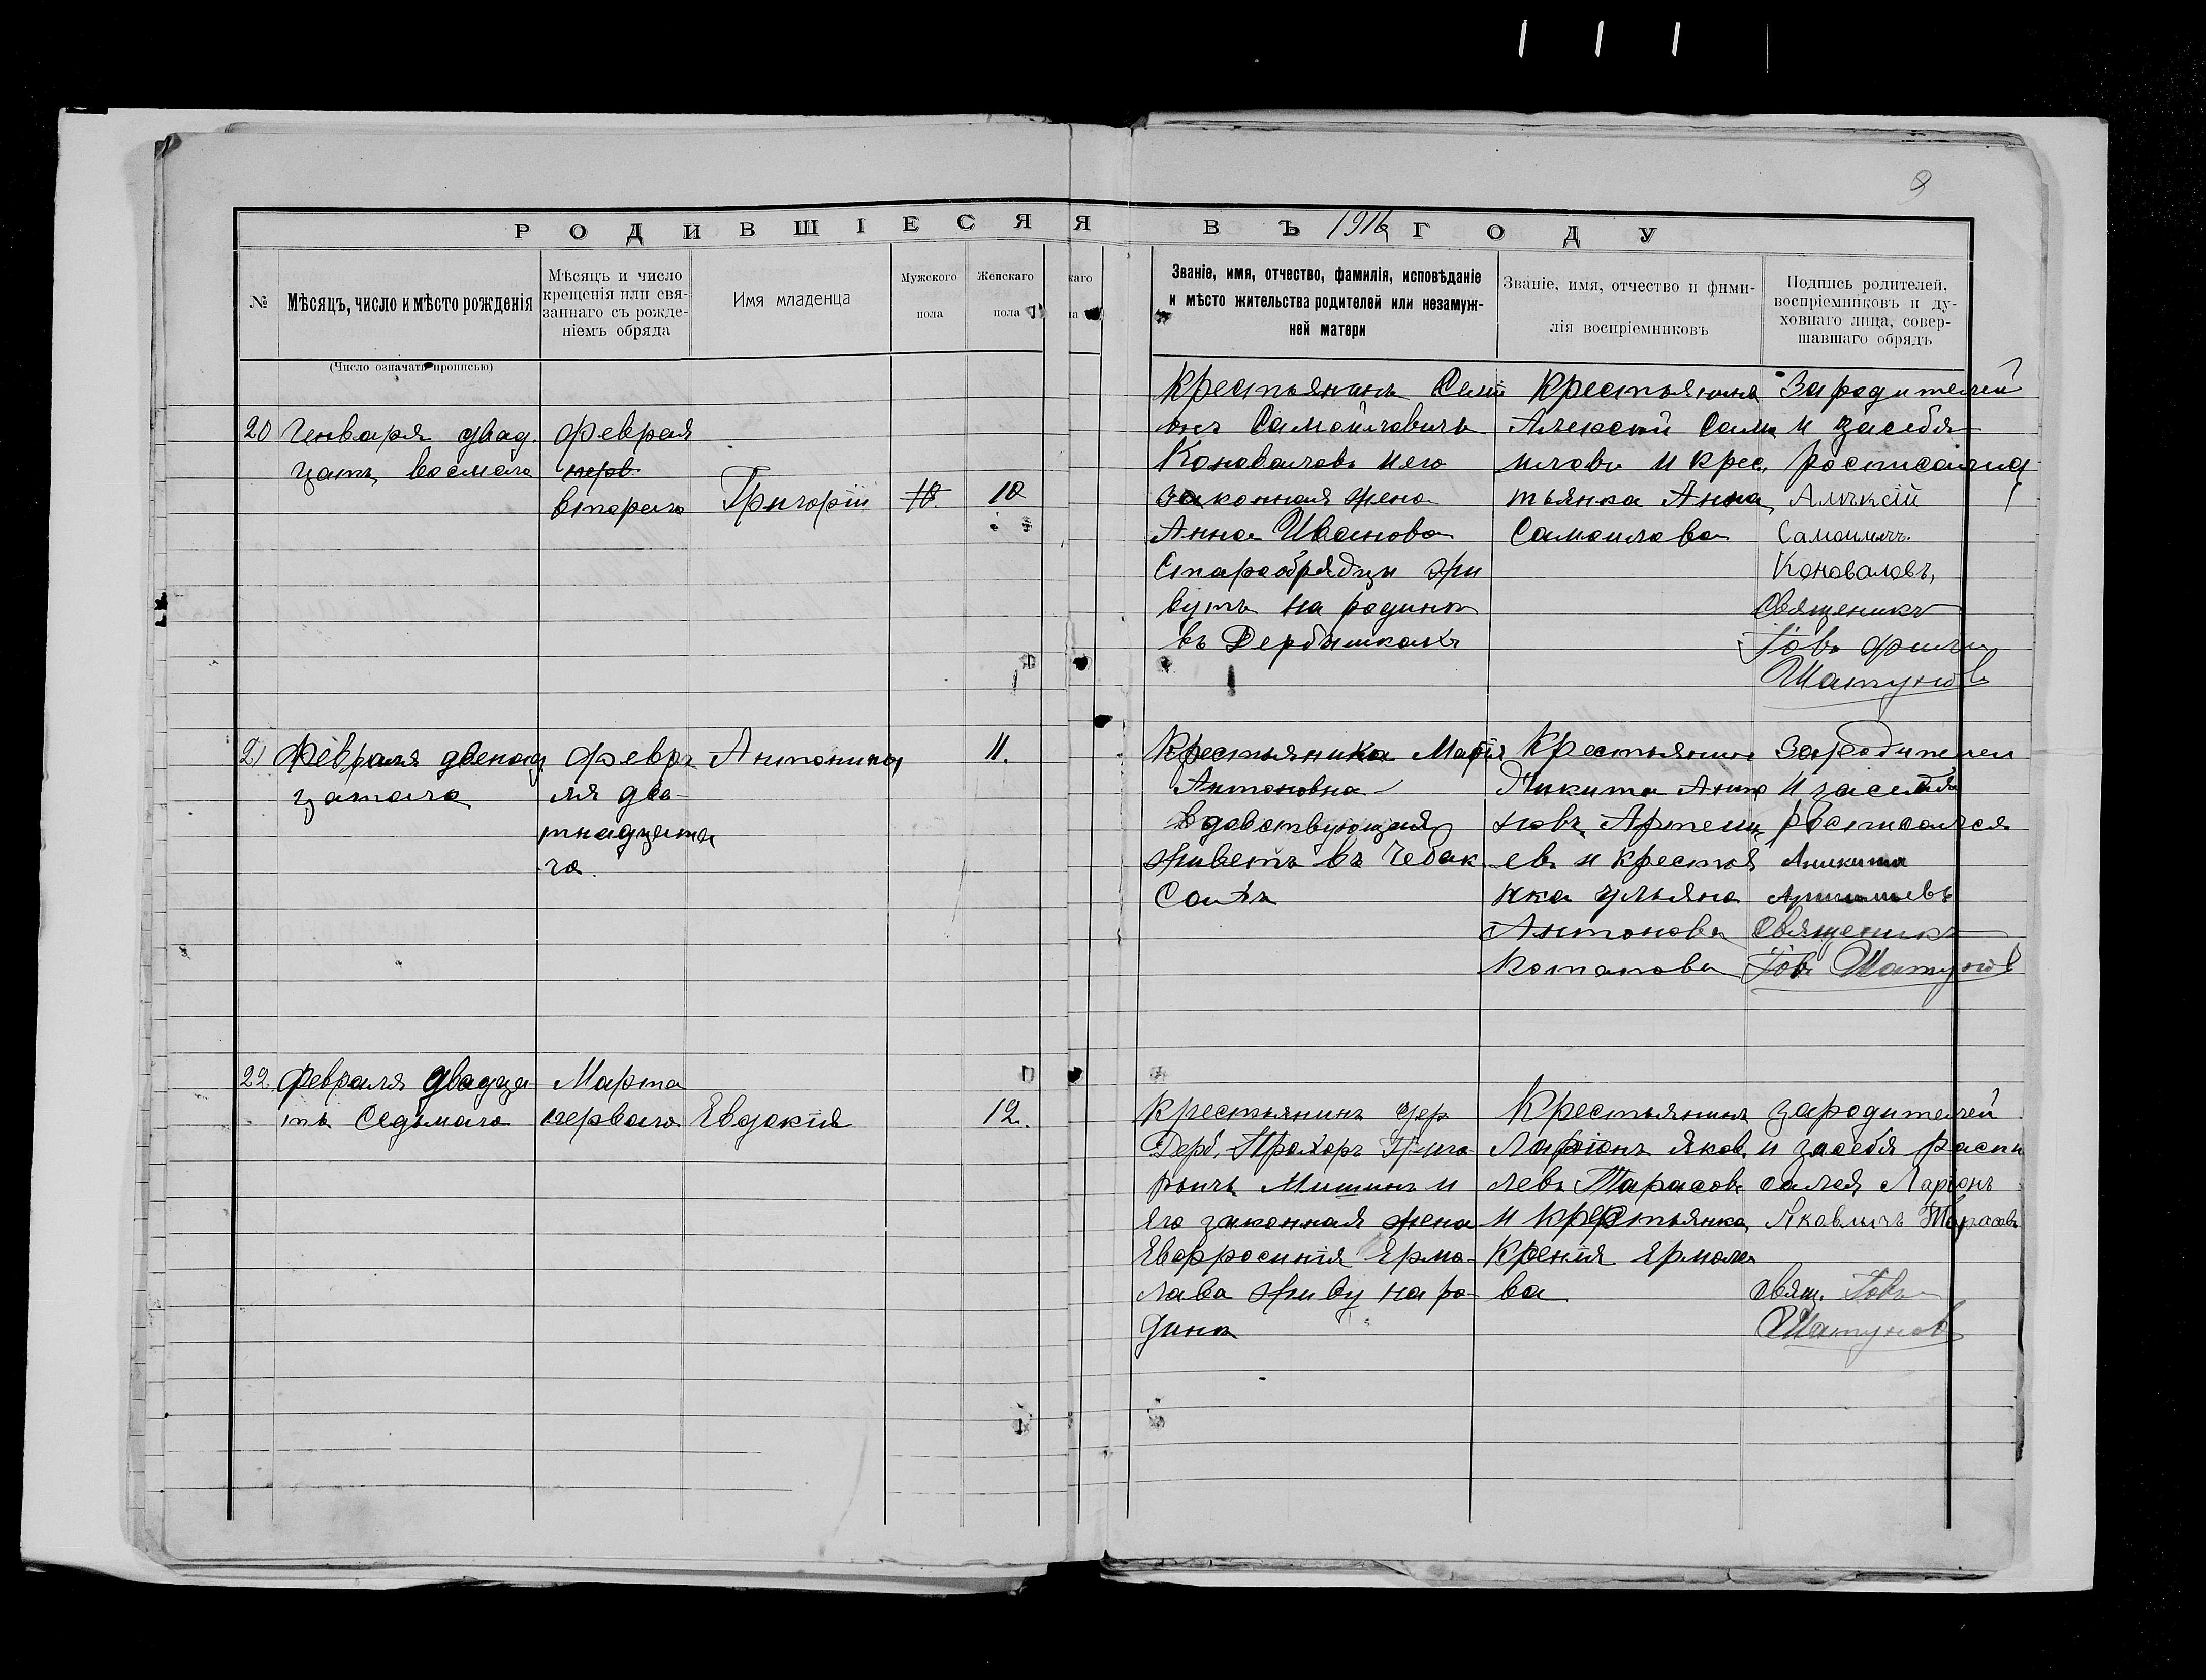 9
РОДИВШІЕСЯ
Я ВЪ 1916 ГОДУ
№
Мѣсяцъ, число и мѣсто рожденія
(Число означать прописью)
Мѣсяцъ и число
крещенія или свя-
заннаго съ рожде-
ніемъ обряда
Имя младенца
Мужского
пола
Женскаго
пола
каго
ла
Званіе, имя, отчество, фамилія, исповѣданіе
и мѣсто жительства родителей или незамуж-
ней матери
Званіе, имя, отчество и фими-
лія воспріемниковъ
Подпись родителей,
воспріемниковъ и ду-
ховнаго лица, совер-
шавшаго обрядъ
20 Генваря двад.
цать, восмаго
Феврая
перв
втораго
Григорій
18.
10
Крестьянинъ Сели
онъ Самойловичъ
Коноваловъ и его
законная жена
Анна Иванова
Старообрядцы жи
вутъ на родинѣ
въ Дербишкахъ
Крестьянинъ
Алексѣй Само
иловъ и крес.
тьянка Анна,
Самоилова
За родителей
и за себя
росписался
Алѣксій
Самоилычъ.
Коноваловъ,
Священикъ
Іовъ Фили
Шатуновъ
21 Февраля двенад
цатаго
Февра
ля две
тнадцата
го.
Антонина
11.
Крестьянка Марія
Антоновна
вдовствующая
живетъ въ Чебак
Солѣ
Крестьянинъ
Никита Анто
новъ, Артемь
евъ и крестья
нка ульяна
Антонова
Котанова
За родителеи
и за себя
росписался
Аникита
Артемьевъ
Священикъ
Іовъ Шатуновъ
22 Февраля двадца
ть Седьмаго
Марта
перваго
Евдокія
12.
Крестьянинъ дер
Дерб, Прохоръ Григо
рьичъ Мишинъ и
Его законная жена
Евфросинія Ермо-
лава живу на ро-
динѣ
Крестьянинъ
Ларіонъ Яков.
левъ Тарасовъ
и крестьянка
Ксенія Ермола
ва
за родителей
и за себя распи
сался Ларіонъ
Яковличъ Тарасовъ
Свящ. Іовъ
Шатуновъ